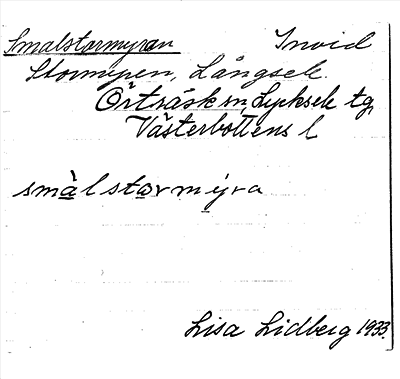 Smalstormyran Invid
Stormyren, Långsele.
Örträsk sn, Lycksele tg,
Västerbottens l
smàlstormyra
Lisa Lidberg 1933.